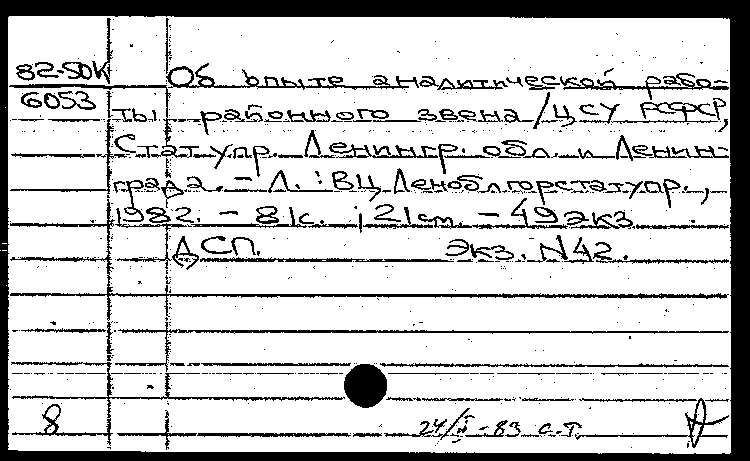 82-5ДК
6053
Об опыте аналитической рабо-
ты районного звена / ЦСУ РСФСР,
Стат. упр. Ленингр. обл. и Ленин-
града. - Л. : ВЦ Леноблгорстатупр.,
1982. - 81с. ; 21см. - 49 экз
ДСП. Экз. N42.
8
24/II-83 С.Т.